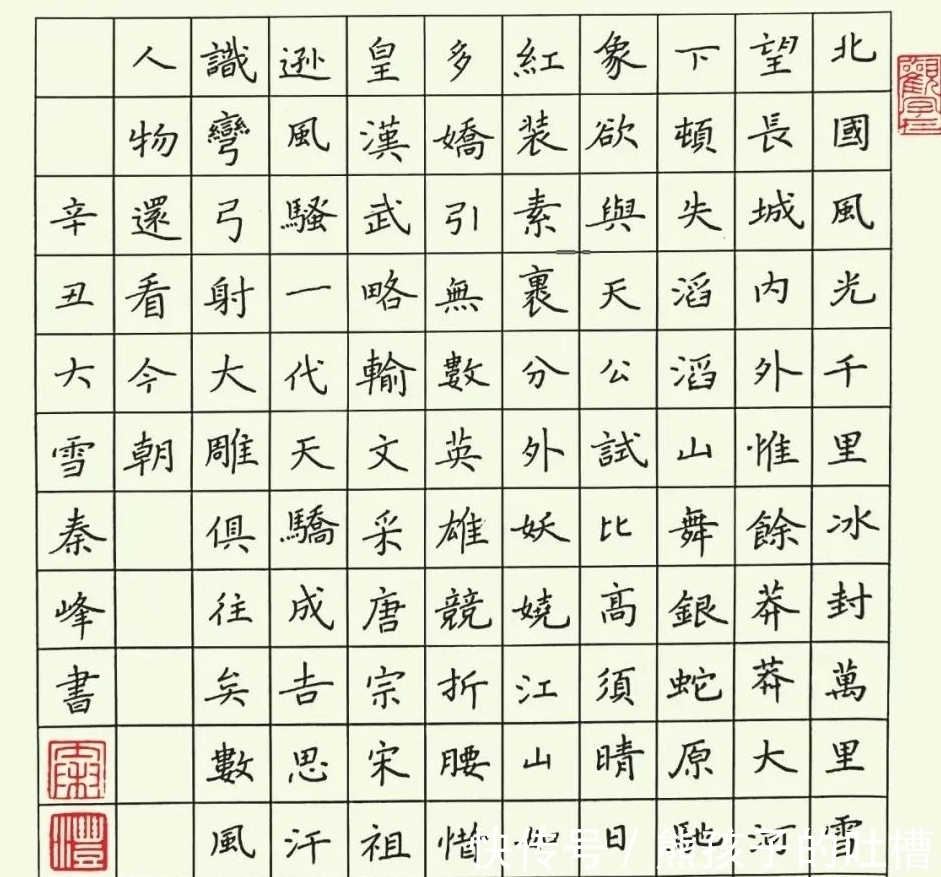 北國風光千里冰封萬里雪
望長城内外惟餘莽莽大河
下頓失滔滔山舞銀蛇原馳
象欲與天公試比高須晴日
紅装素裹分外妖嬈江山
多嬌引無數英雄競折腰惜
皇漢武略輸文采唐宗宋祖
遜風騷一代天驕成吉思汗
識彎弓射大雕俱往矣數風
人物還看今朝
辛丑大雪秦峰書
快传号 / 熊孩子的吐槽